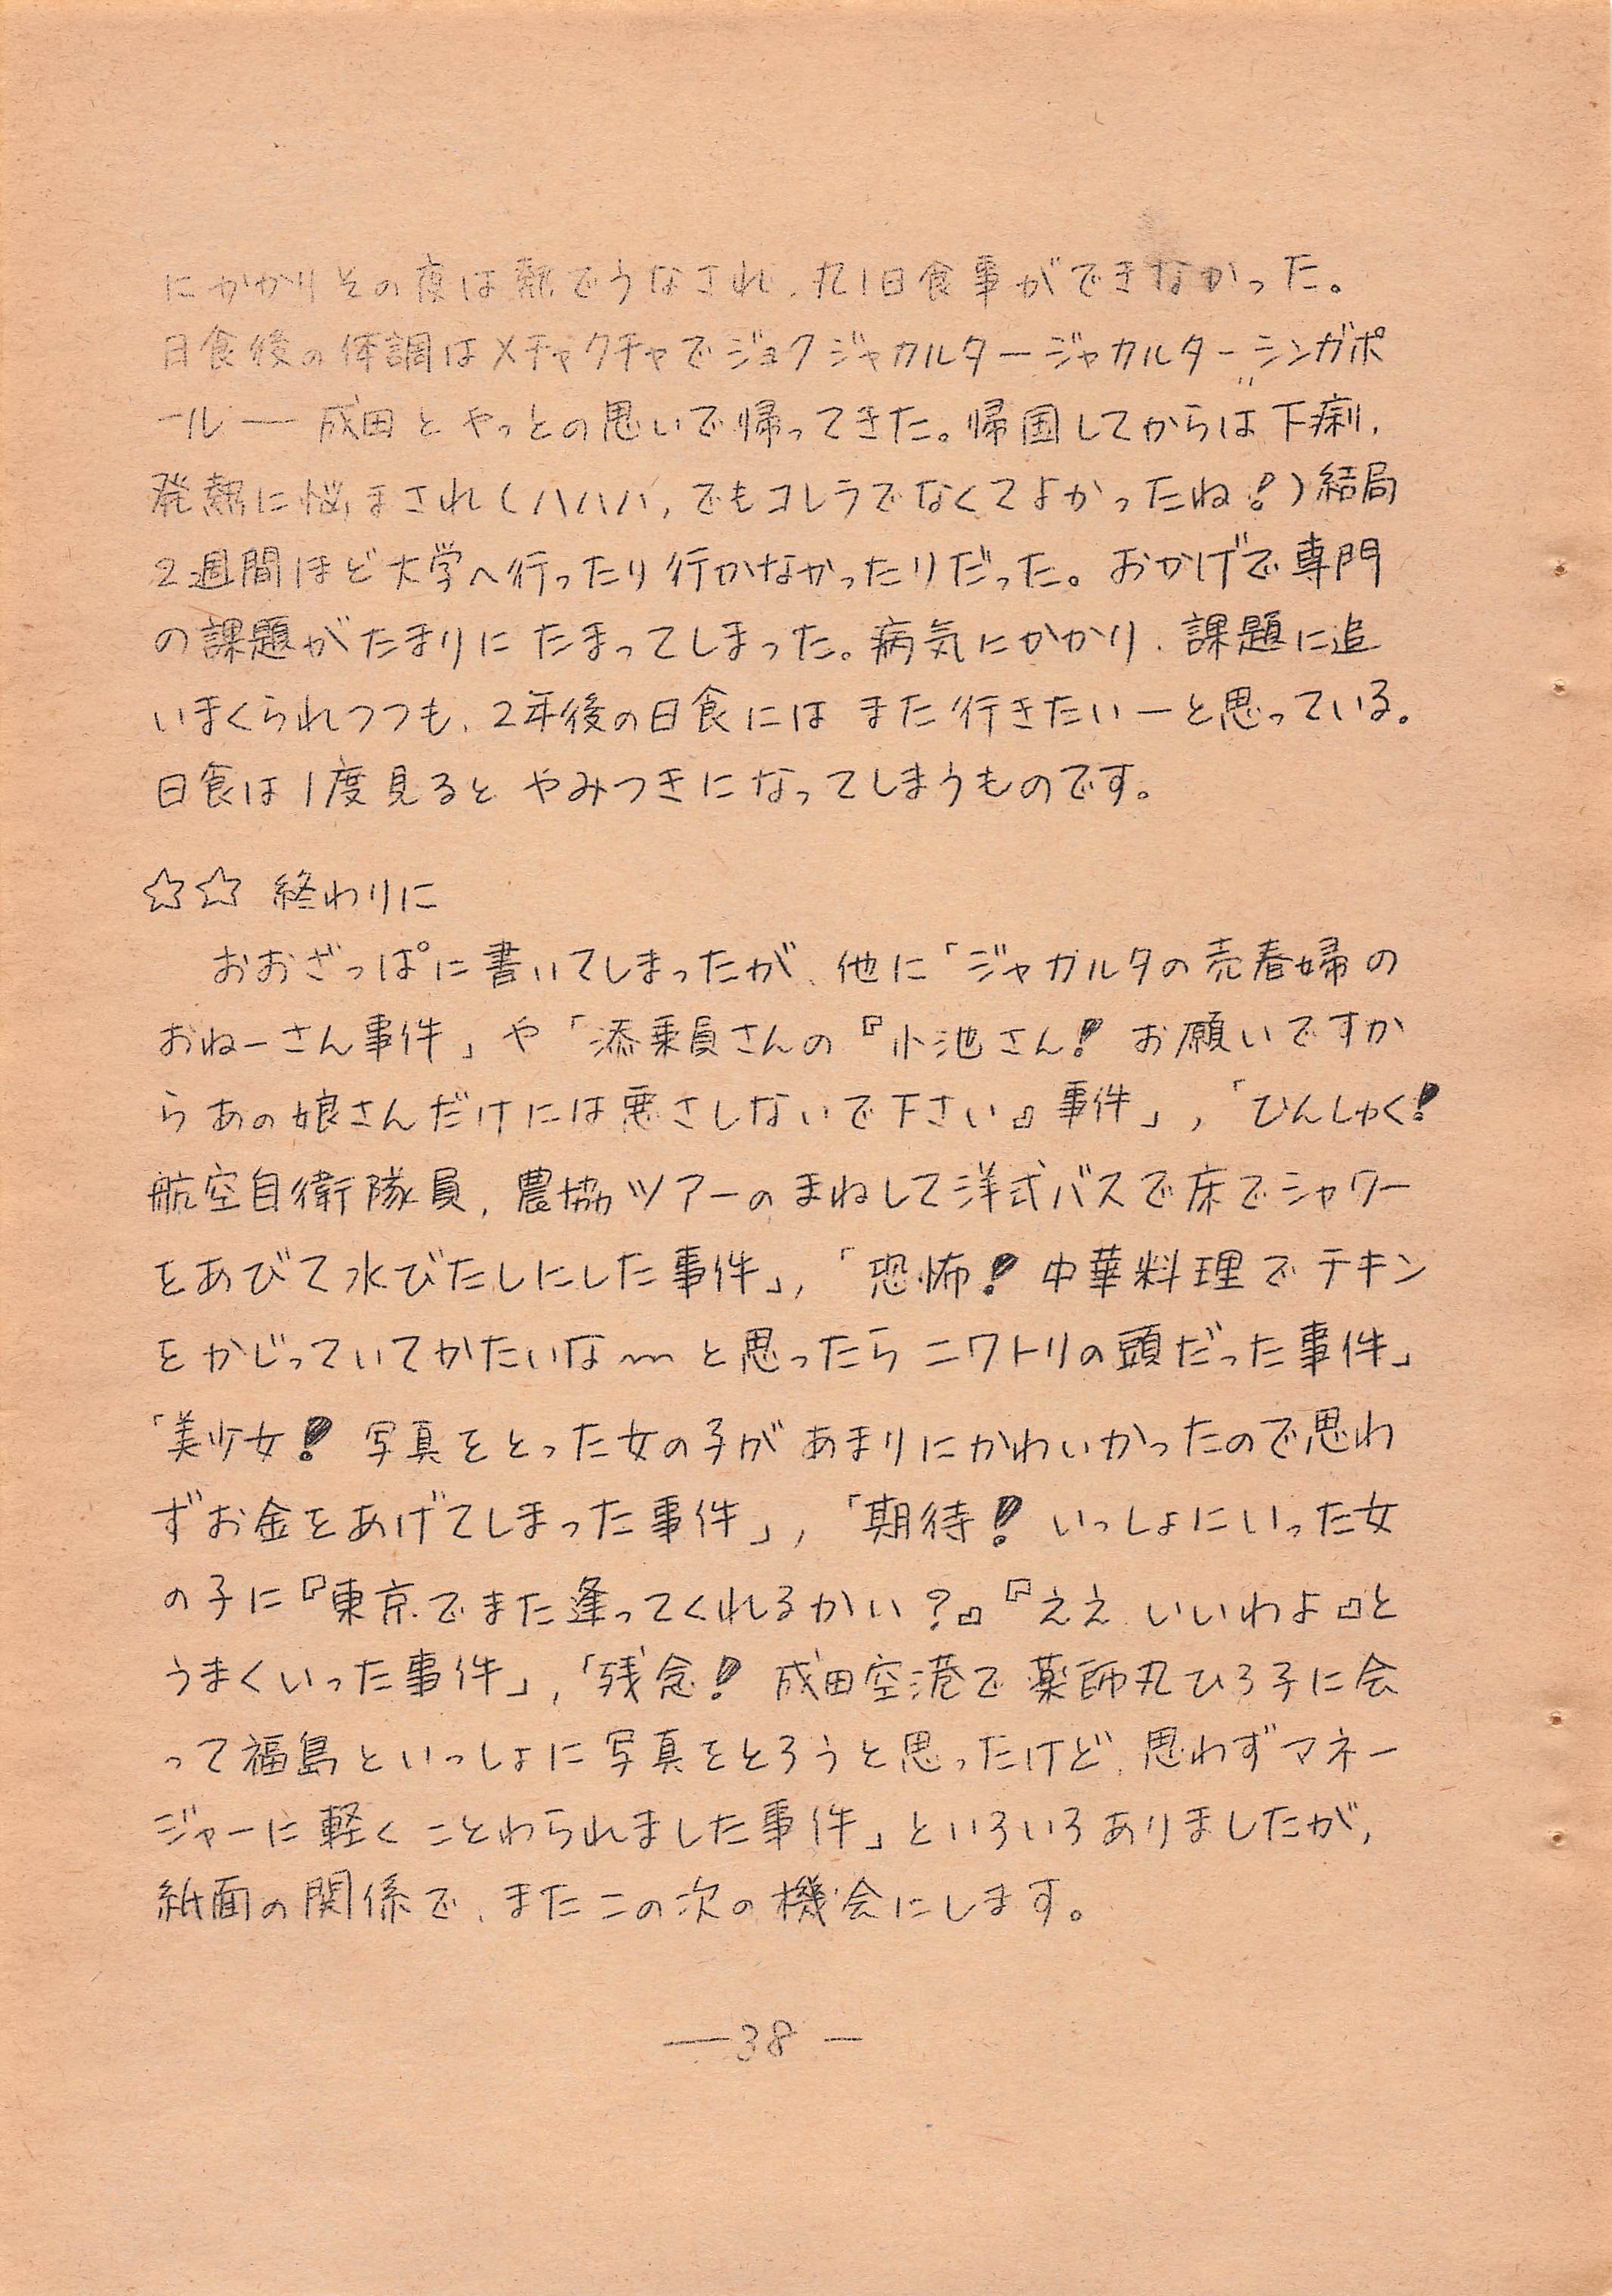 にかかりその夜は熱でうなされ、丸1日食事ができなかった。
日食後の体調はメチャクチャでジョクジャカルターージャカルターーシンガポ
ール――成田とやっとの思いで帰ってきた。帰国してからは下痢,
発熱に悩まされ(ハハハ,でもコレラでなくてよかったね!)結局
2週間ほど大学へ行ったり行かなかったりだった。おかげで専門
の課題がたまりにたまってしまった。病気にかかり、課題に追
いまくられつつも、2年後の日食にはまた行きたいーと思っている。
日食は1度見るとやみつきになってしまうものです。
☆☆ 終わりに
おおざっぱに書いてしまったが、他に「ジャガルタの売春婦の
おねーさん事件」や「添乗員さんの『小池さん!お願いですか
らあの娘さんだけには悪さしないで下さい』事件」,「ひんしゅく!
航空自衛隊員,農協ツアーのまねして洋式バスで床でシャワー
をあびて水びたしにした事件」,「恐怖!中華料理でチキン
をかじっていてかたいな〜と思ったらニワトリの頭だった事件」
「美少女!写真をとった女の子があまりにかわいかったので思わ
ずお金をあげてしまった事件」,「期待!いっしょにいった女
の子に『東京でまた逢ってくれるかい?』『ええ、いいわよ』と
うまくいった事件」,「残念!成田空港で薬師丸ひろ子に会
って福島といっしょに写真をとろうと思ったけど、思わずマネー
ジャーに軽くことわられました事件」といろいろありましたが,
紙面の関係で、またこの次の機会にします。
―38―